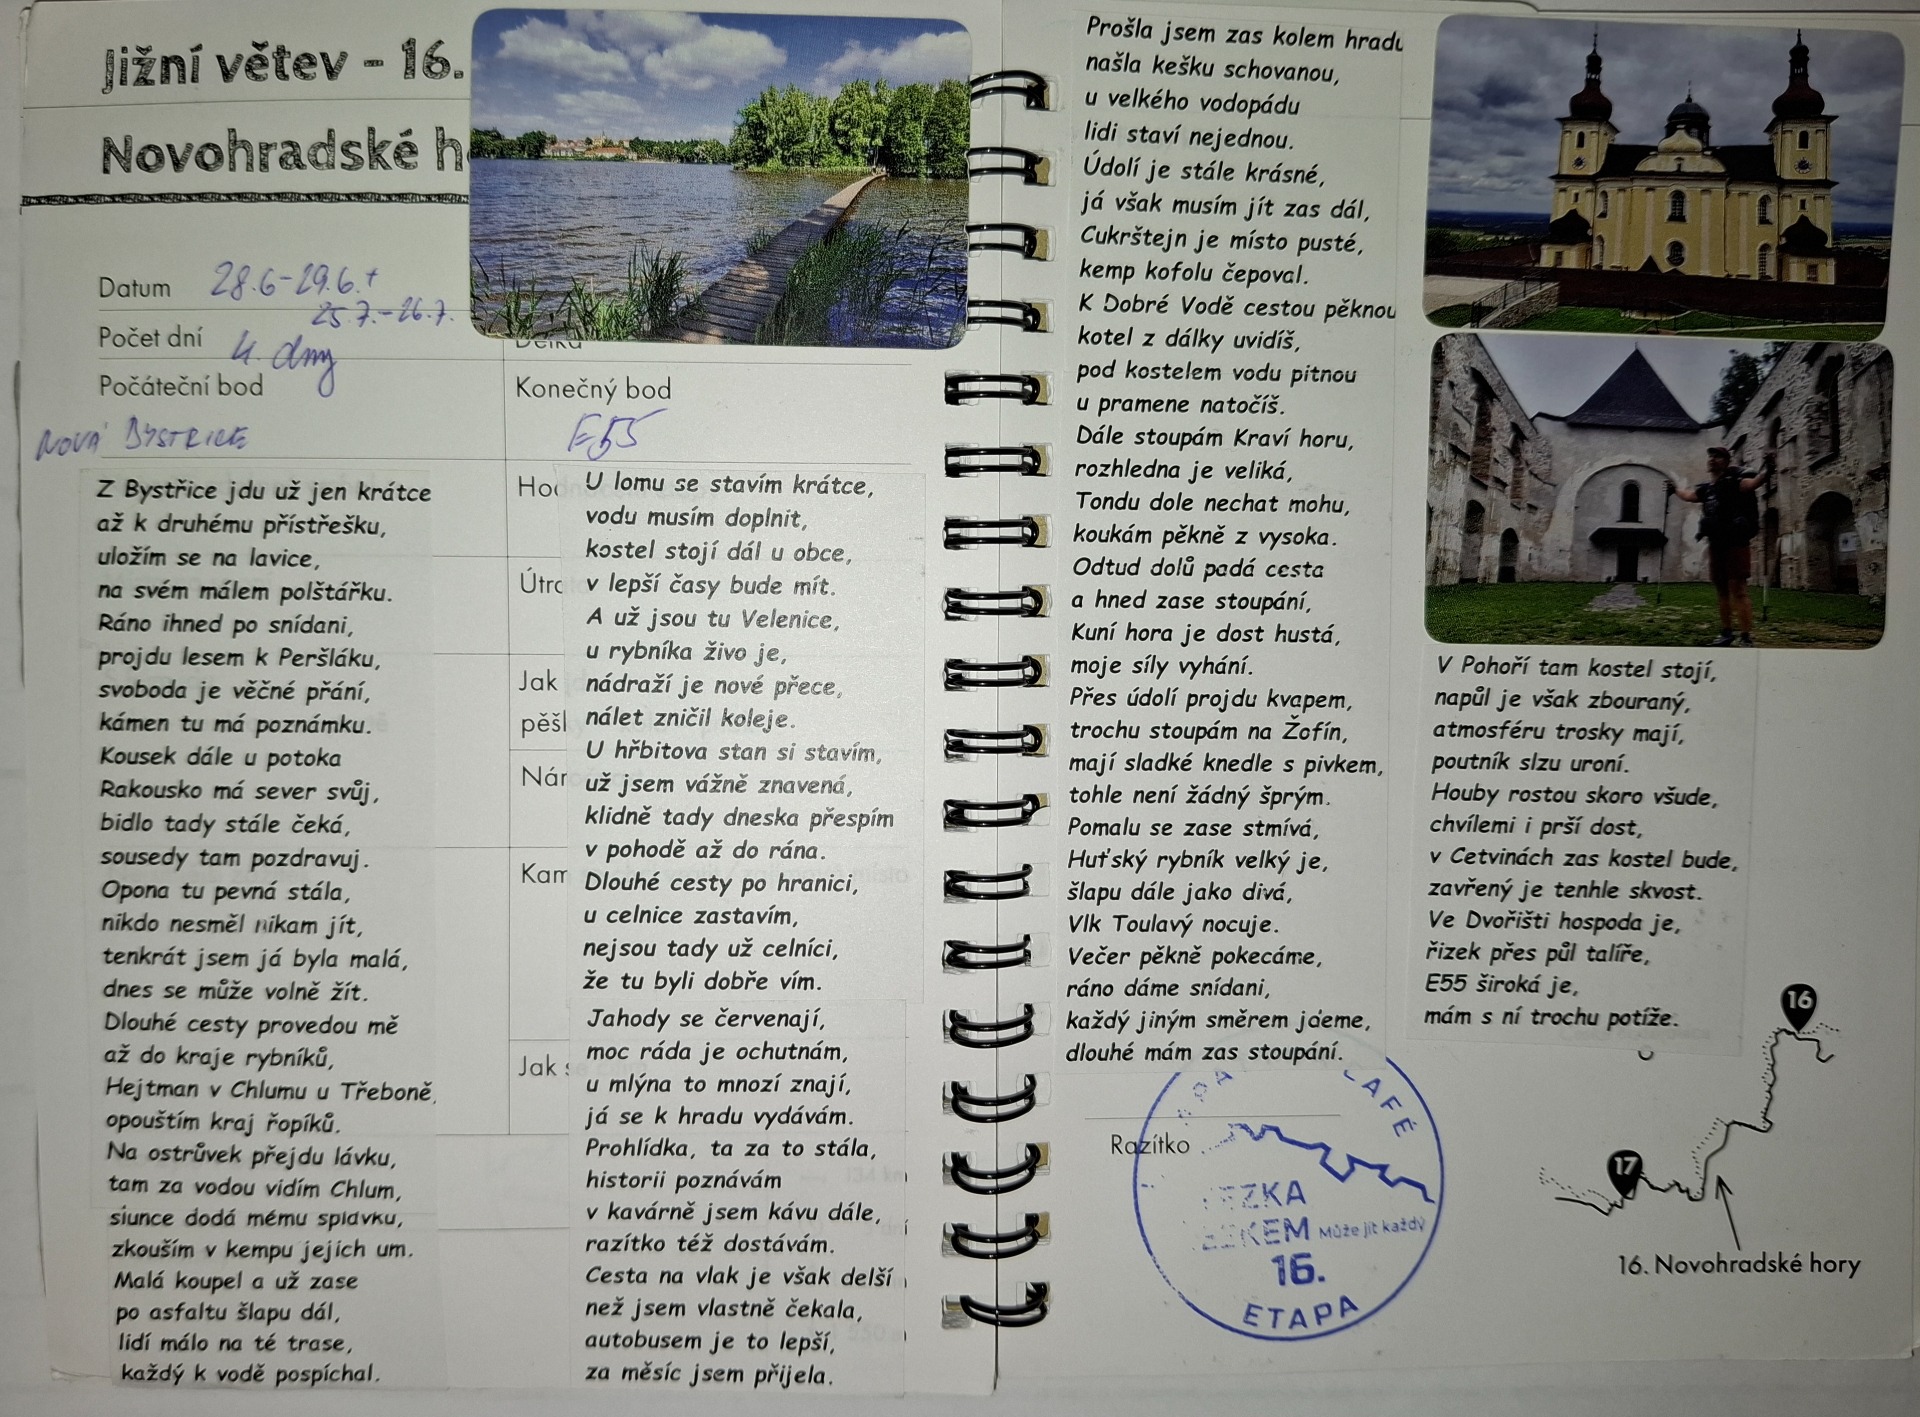 Jižní větev - 16.
Novohradské
Datum 28.6-29.6.+
25.7.-26.7.
Počet dní 4. dny
Délka
Počáteční bod
Konečný bod
NOVÁ BYSTŘICE
E55
Z Bystřice jdu už jen krátce
až k druhému přístřešku,
uložím se na lavice,
na svém málem polštářku.
Ráno ihned po snídani,
projdu lesem k Peršláku,
svoboda je věčné přání,
kámen tu má poznámku.
Kousek dále u potoka
Rakousko má sever svůj,
bidlo tady stále čeká,
sousedy tam pozdravuj.
Opona tu pevná stála,
nikdo nesměl nikam jít,
tenkrát jsem já byla malá,
dnes se může volně žít.
Dlouhé cesty provedou mě
až do kraje rybníků,
Hejtman v Chlumu u Třeboně,
opouštím kraj řopíků.
Na ostrůvek přejdu lávku,
tam za vodou vidím Chlum,
slunce dodá mému splávku,
zkouším v kempu jejich um.
Malá koupel a už zase
po asfaltu šlapu dál,
lidí málo na té trase,
každý k vodě pospíchal.
Jak
Jak
U lomu se stavím krátce,
vodu musím doplnit,
kostel stojí dál u obce,
v lepší časy bude mít.
A už jsou tu Velenice,
u rybníka živo je,
nádraží je nové přece,
nálet zničil koleje.
U hřbitova stan si stavím,
už jsem vážně znavená,
klidně tady dneska přespím
v pohodě až do rána.
Dlouhé cesty po hranici,
u celnice zastavím,
nejsou tady už celníci,
že tu byli dobře vím.
Jahody se červenají,
moc ráda je ochutnám,
u mlýna to mnozí znají,
já se k hradu vydávám.
Prohlídka, ta za to stála,
historii poznávám
v kavárně jsem kávu dále,
razítko též dostávám.
Cesta na vlak je však delší
než jsem vlastně čekala,
autobusem je to lepší,
za měsíc jsem přijela.
Prošla jsem zas kolem hradu
našla kešku schovanou,
u velkého vodopádu
lidi staví nejednou.
Údolí je stále krásné,
já však musím jít zas dál,
Cukrštejn je místo pusté,
kemp kofolu čepoval.
K Dobré Vodě cestou pěknou
kotel z dálky uvidíš,
pod kostelem vodu pitnou
u pramene natočíš.
Dále stoupám Kraví horu,
rozhledna je veliká,
Tondu dole nechat mohu,
koukám pěkně z vysoka.
Odtud dolů padá cesta
a hned zase stoupání,
Kuní hora je dost hustá,
moje síly vyhání.
Přes údolí projdu kvapem,
trochu stoupám na Žofín,
mají sladké knedle s pivkem,
tohle není žádný šprým.
Pomalu se zase stmívá,
Huťský rybník velký je,
šlapu dále jako divá,
Vlk Toulavý nocuje.
Večer pěkně pokecáme,
ráno dáme snídani,
každý jiným směrem jdeme,
dlouhé mám zas stoupání.
V Pohoří tam kostel stojí,
napůl je však zbouraný,
atmosféru trosky mají,
poutník slzu uroní.
Houby rostou skoro všude,
chvílemi i prší dost,
v Cetvinách zas kostel bude,
zavřený je tenhle skvost.
Ve Dvořišti hospoda je,
řizek přes půl talíře,
E55 široká je,
mám s ní trochu potíže.
Razítko
CAFÉ
Může jít každý
16.
ETAPA
16
17
16. Novohradské hory